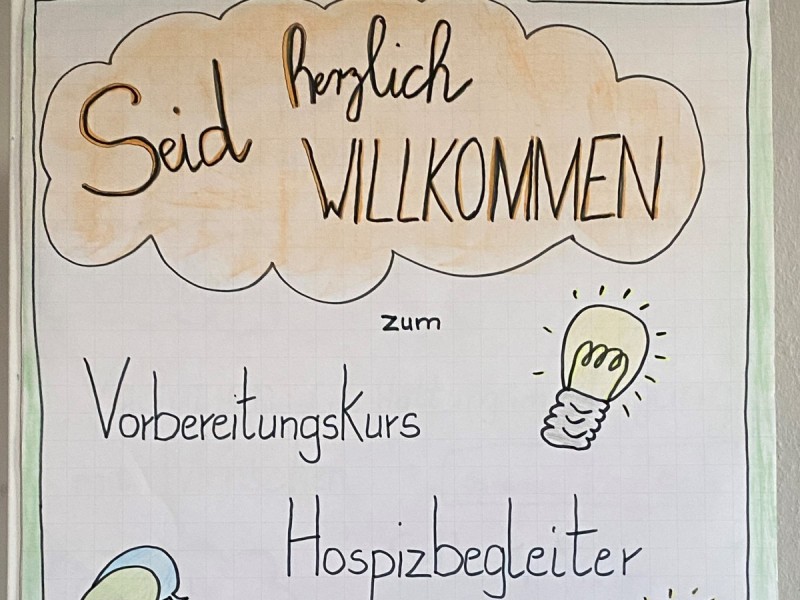 Seid herzlich
WILLKOMMEN
zum
Vorbereitungskurs
Hospizbegleiter